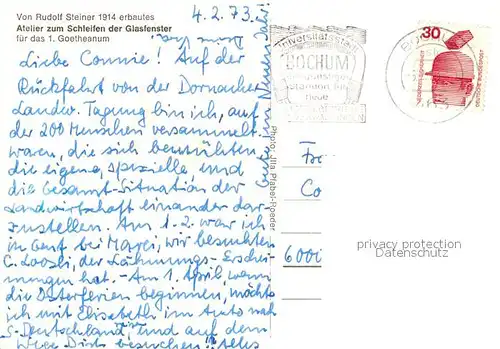 Von Rudolf Steiner 1914 erbautes
Atelier zum Schleifen der Glasfenster
für das 1. Goetheanum
4.2.73.
Liebe Connie! Auf der
Rückfahrt von der Dornacher
Landw. Tagung bin ich, auf
der 200 Menschen versammelt
waren, die sich bemühten
die eigene, spezielle, und
die Gesamt-Situation der
Landwirtschaft einander dar-
zustellen. Am 1.2. war ich
in Genf bei Marei, wir besuchten
C. Loosli, der Lähmungs-Erschei-
nungen hat. - Am 1. April, wenn
die Osterferien beginnen, möchte
ich mit Elisabeth im Auto nach
S-Deutschland, und auf dem
Wege Dich besuchen! Alles
Gute im Neuen Jahr
Photo: Jutta Pfabel-Roeder
Universitätsstadt
BOCHUM
30
DEUTSCHE BUNDESPOST
Fr
Co
6000
privacy protection
Datenschutz